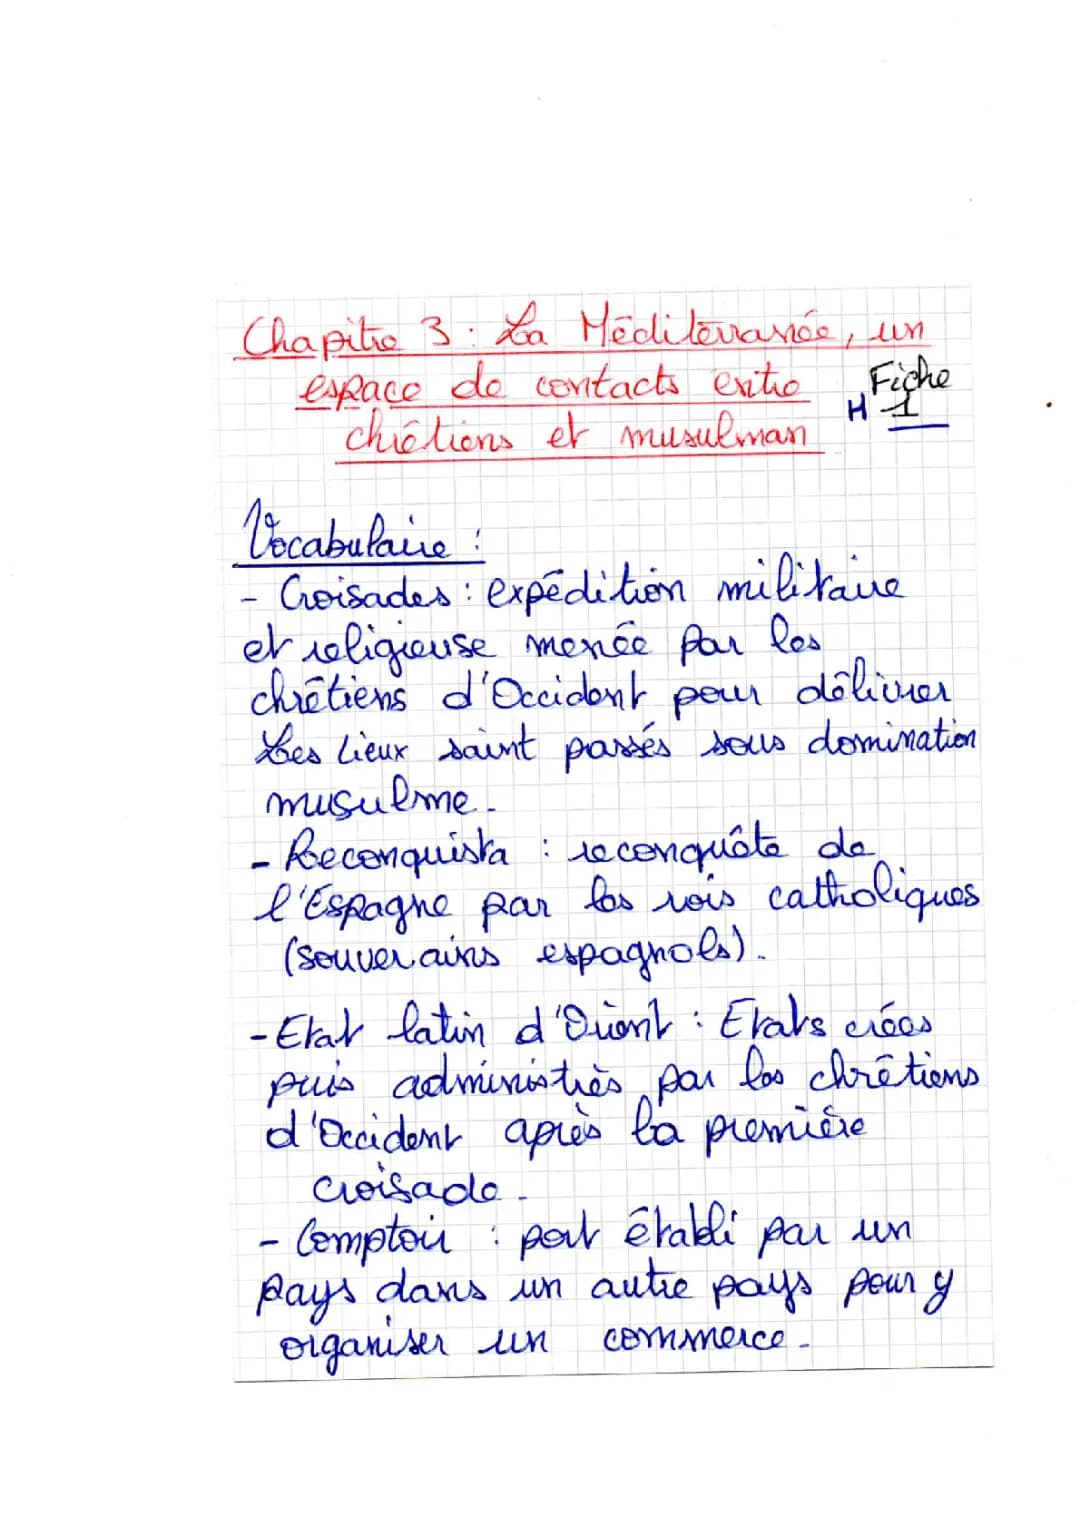 Chapitre 3 : La Méditerranée, un
espace de contacts entre
chrétiens et musulman
Fiche
H 1
Vocabulaire :
- Croisades : expédition militaire
et religieuse menée par les
chrétiens d'Occident pour délivrer
Les lieux saint passés sous domination
musulme.
- Reconquista : reconquête de
l'Espagne par les rois catholiques
(souverains espagnols).
- Etat latin d'Orient : Etats créés
puis administrés par les chrétiens
d'Occident après la première
croisade.
- Comptoir : port établi par un
pays dans un autre pays pour y
organiser un commerce.